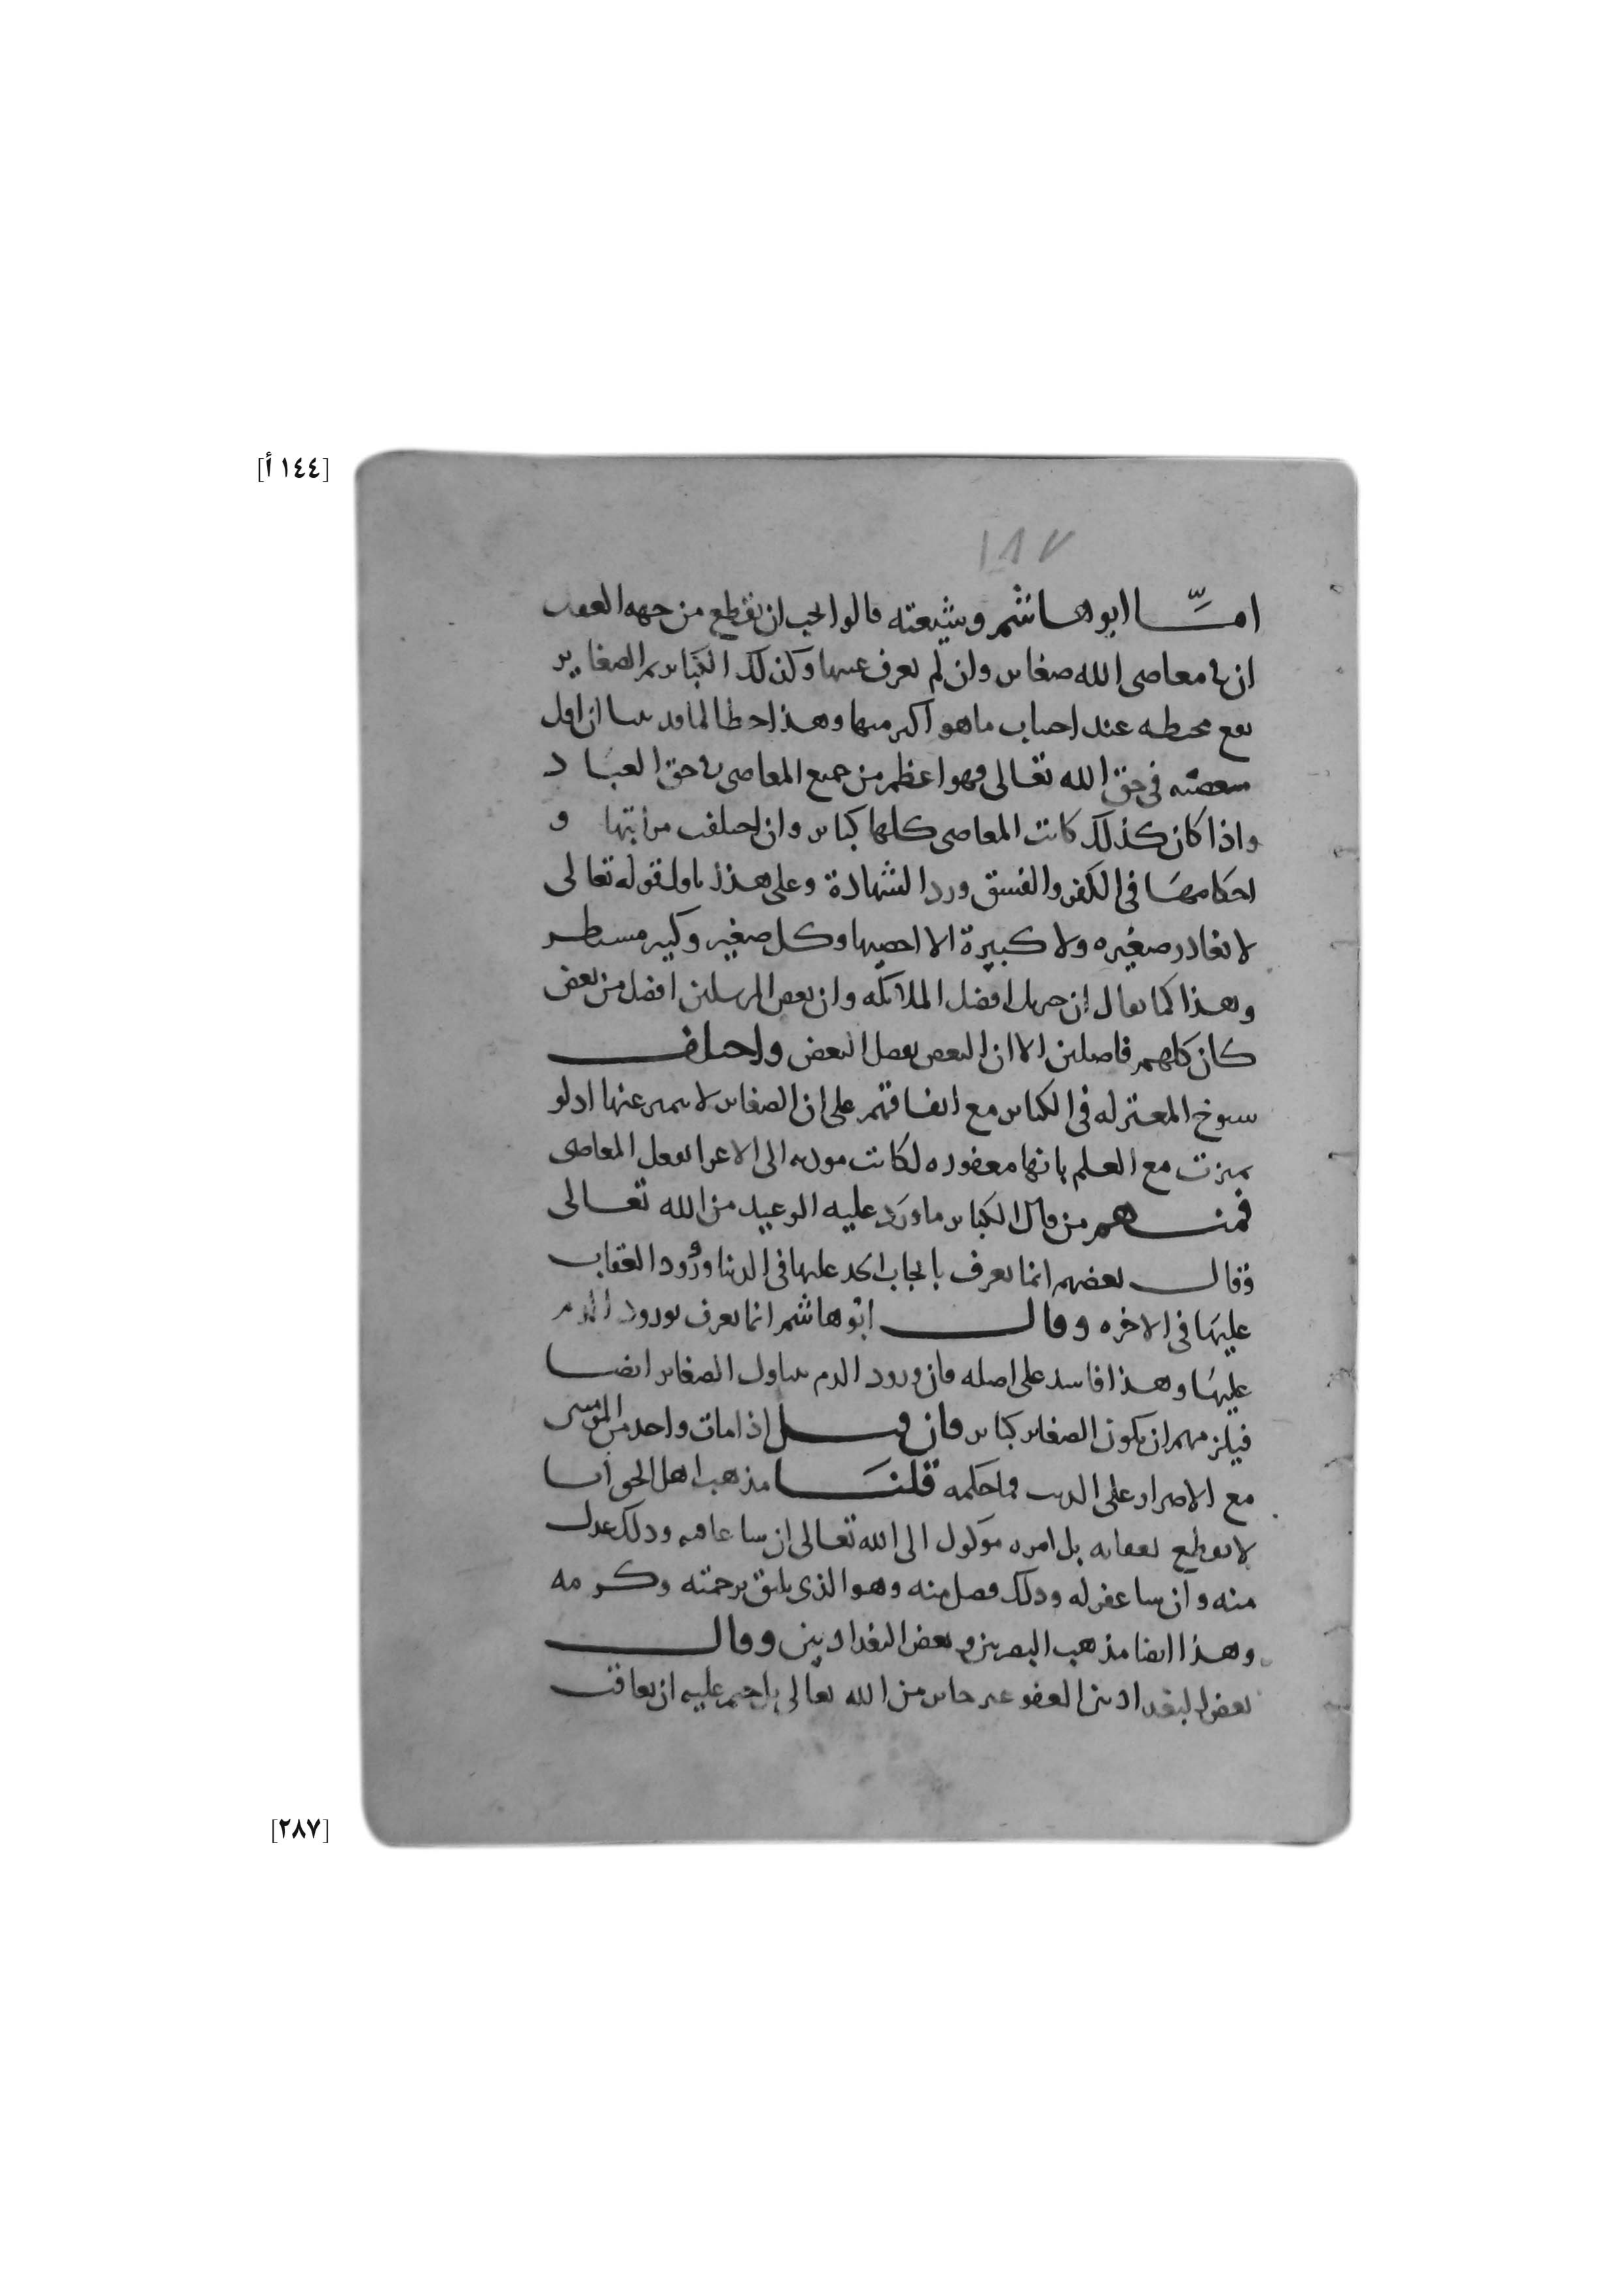 [١٤٤ أ]
١٨٧
امّا ابو هاشم وشيعته قالوا يجب ان نقطع من جهه العقل
ان في معاصى الله صغاير وان لم يعرف عينها وكذلك الكباير مر الصغاير
يقع محبطه عند اجتناب ما هو اكبر منها وهذا خطا لما قد بينا ان اقل
معصيته في حق الله تعالى فهو اعظم من جميع المعاصى في حق العباد
واذا كان كذلك كانت المعاصى كلها كباير وان اختلفت مراتبها و
احكامها في الكفر والفسق ورد الشهادة وعلى هذا ياول قوله تعالى
لا يغادر صغيره ولا كبيرة الا احصيها وكل صغير وكبير مستطر
وهذا كما يقال ان جبريل افضل الملائكه وان بعض المرسلين افضل من بعض
كان كلهم فاضلين الا ان البعض يفضل البعض واختلف
شيوخ المعتزله في الكباير مع اتفاقهم على ان الصغاير لا تميز عنها اذ لو
ميزت مع العلم بانها مغفوره لكانت موديه الى الاغرا بفعل المعاصى
فمنهم من قال الكباير ما ورد عليه الوعيد من الله تعالى
وقال بعضهم انما يعرف بايجاب الحد عليها في الدنيا وورود العقاب
عليها في الاخره وقال ابو هاشم انما يعرف بورود الذم
عليها وهذا فاسد على اصله فان ورود الذم يتناول الصغاير ايضا
فيلزمهم ان يكون الصغاير كباير فان قيل اذا مات واحد من المومنين
مع الاصرار على الذنب فما حكمه قلنا مذهب اهل الحق انا
لا نقطع بعقابه بل امره موكول الى الله تعالى ان شا عاقبه وذلك عدل
منه وان شا غفر له وذلك فضل منه وهو الذي يليق برحمته وكرمه
وهذا ايضا مذهب البصريين وبعض البغداديين وقال
بعض البغداديين العفو غير جايز من الله تعالى بل حتم عليه ان يعاقب
[٢٨٧]